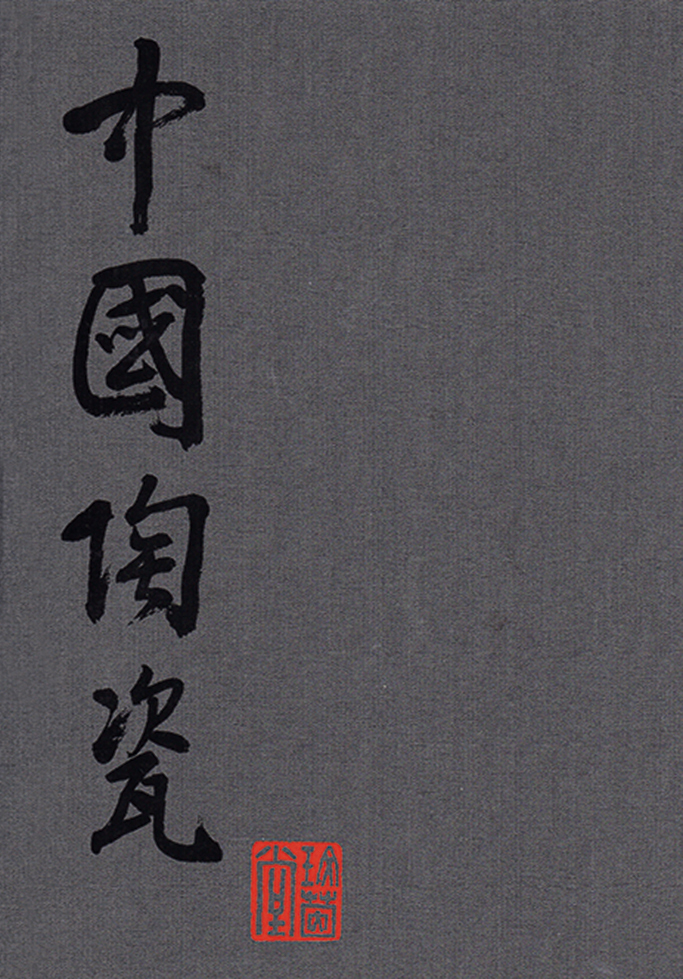 中國陶瓷